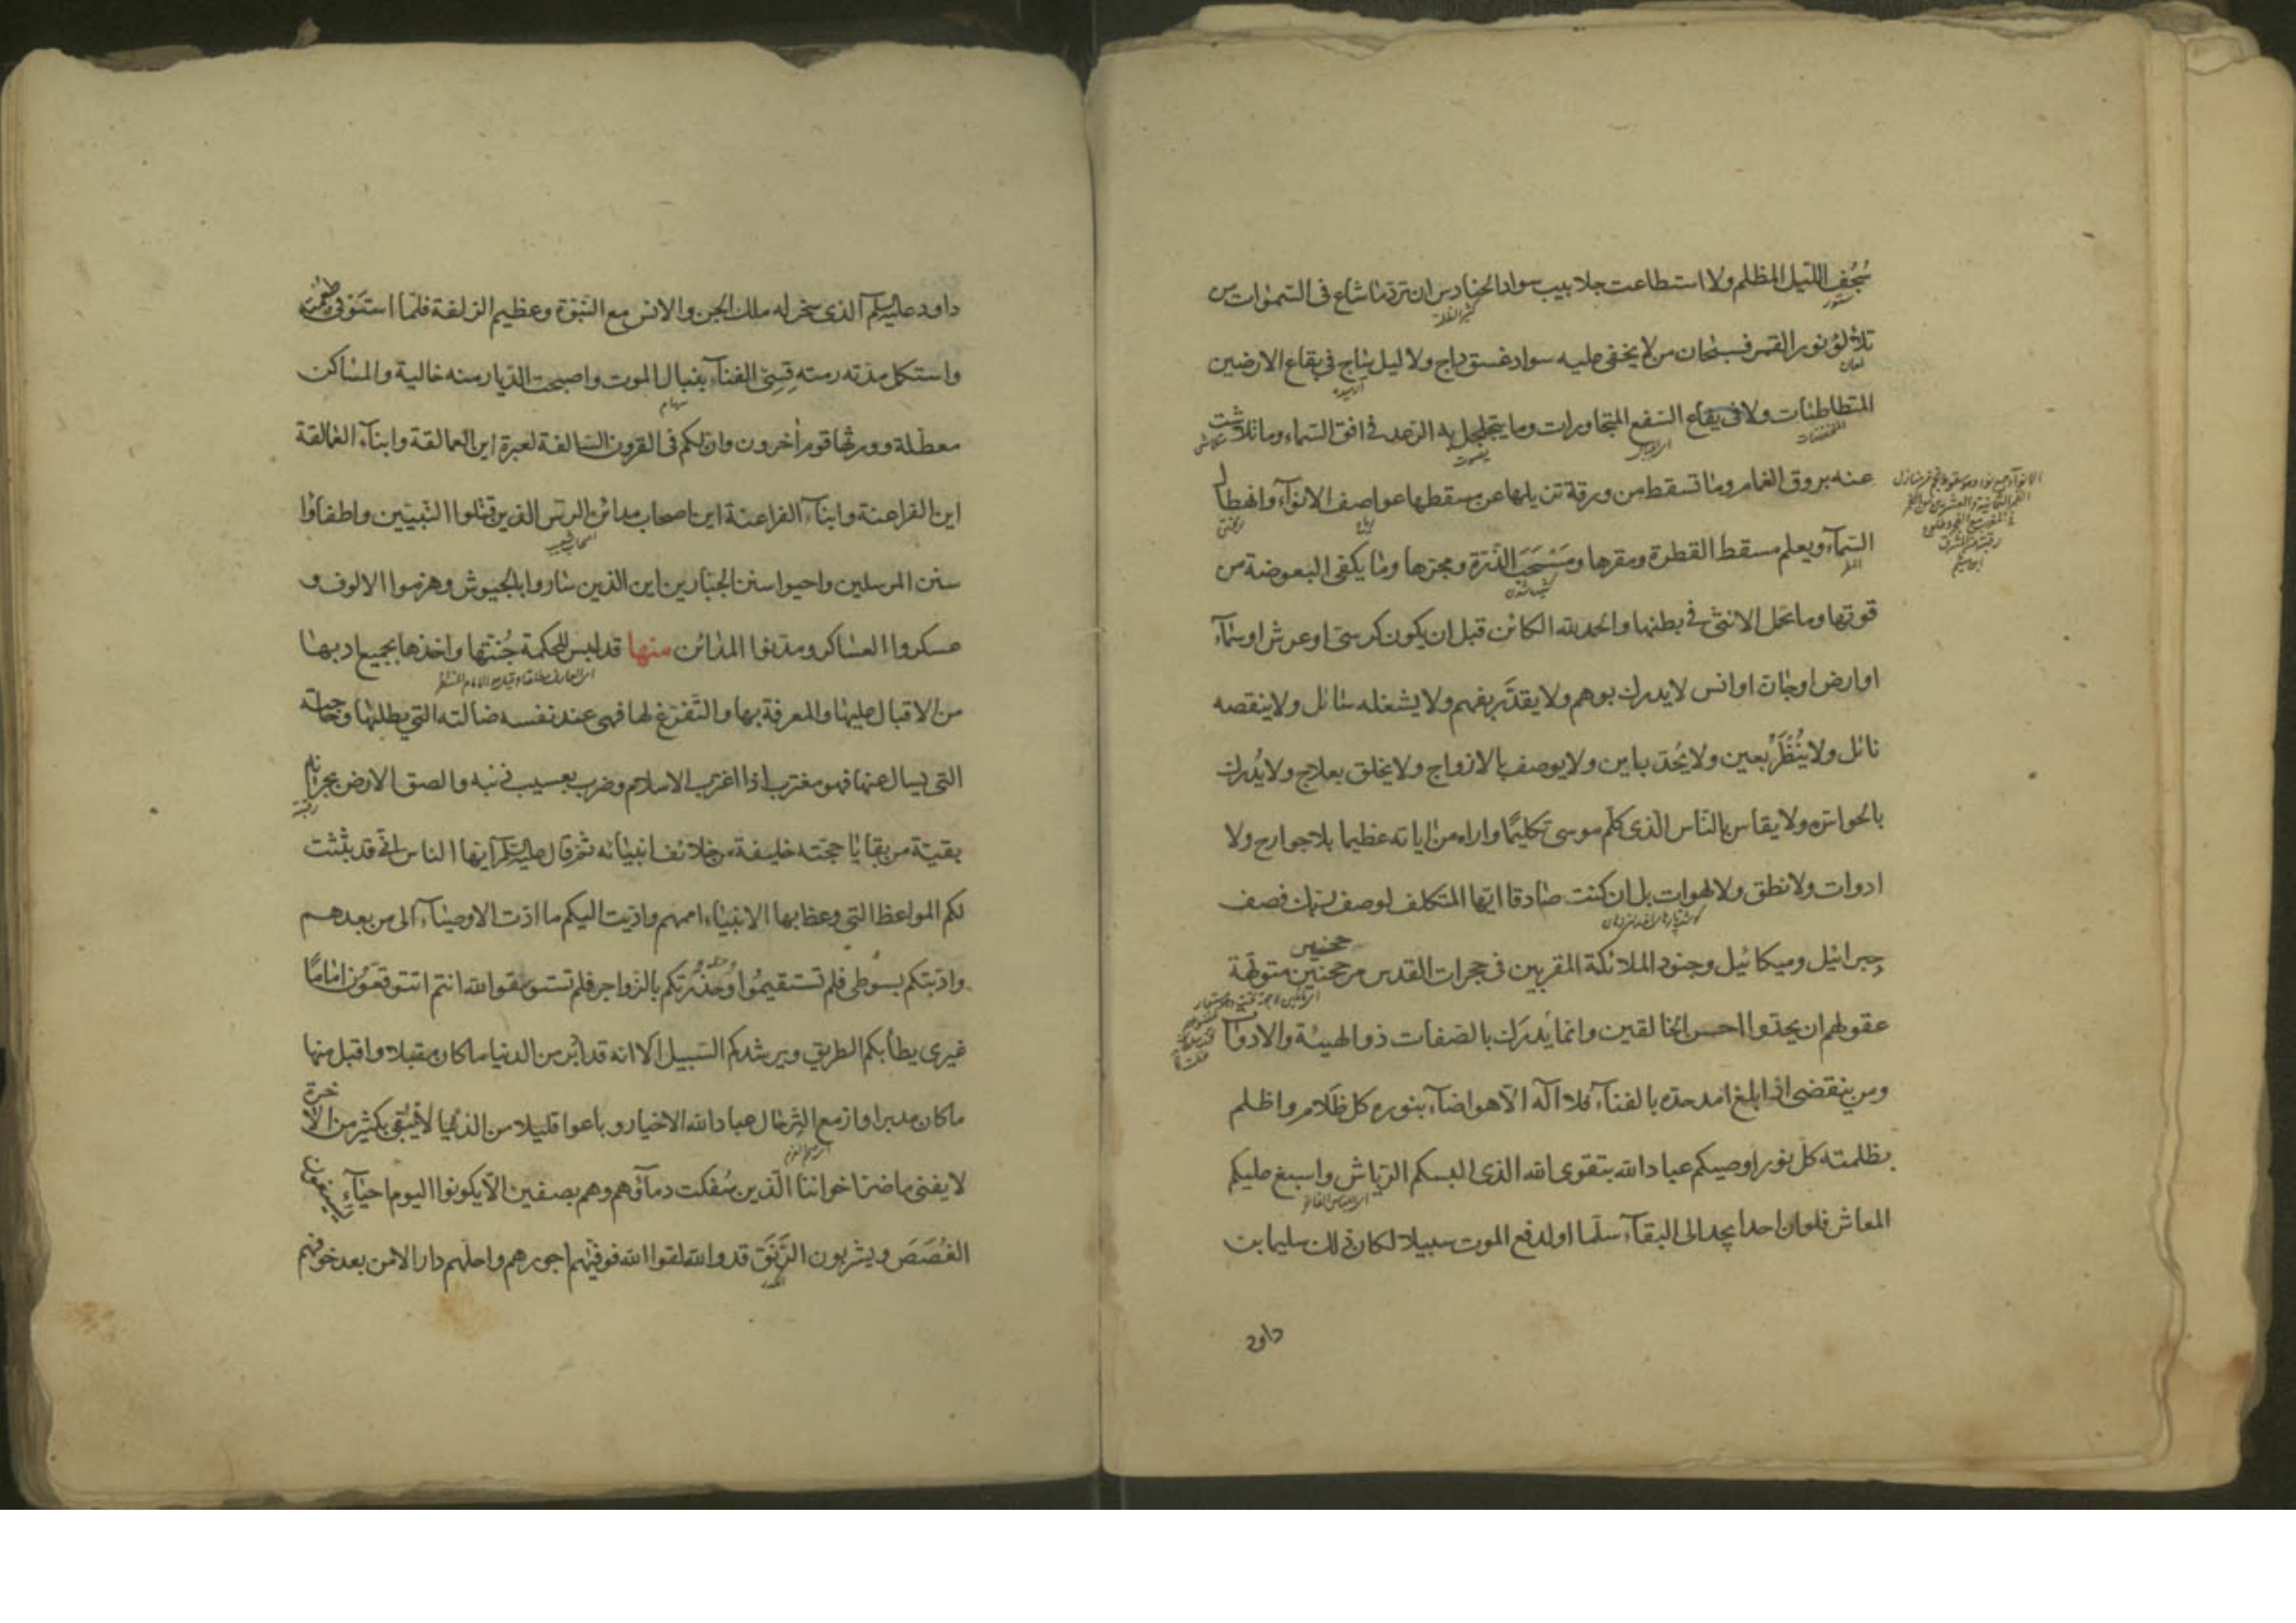 سُجُف الليل المظلم ولا استطاعت جلابيب سواد الحنادس ان ترد ما شاع فى السموات من
ستور
تلألؤ نور القمر فسبحان من لا يخفى عليه سواد غسق داج ولا ليل ساج فى بقاع الارضين
لمعان
المتطاطئات ولا فى يفاع السفع المتجاورات وما يتجلجل به الرعد فى افق السماء وما تلاشت
المنخفضات
عنه بروق الغمام وما تسقط من ورقة تزيلها عن مسقطها عواصف الانوآء وانهطال
السمآء ويعلم مسقط القطرة ومقرها ومَسْحَبَ الذرة ومجرها وما يكفى البعوضة من
المطر
قوتها وما تحمل الانثى فى بطنها والحمد لله الكائن قبل ان يكون كرسى او عرش او سمآء
او ارض او جان او انس لا يدرك بوهم ولا يقدَّر بفهم ولا يشغله سائل ولا ينقصه
نائل ولا يُنْظَرُ بعين ولا يُحدّ باين ولا يوصف بالازواج ولا يخلق بعلاج ولا يُدرك
بالحواس ولا يقاس بالناس الّذى كلّم موسى تكليمًا واراه من اياته عظيما بلا جوارح ولا
ادوات ولا نطق ولا لهوات بل ان كنت صادقا ايها المتكلف لوصف ربك فصف
جبرائيل وميكائيل وجنود الملائكة المقربين فى حجرات القدس مرجحنين متولّهة
عقولهم ان يحدّوا احسن الخالقين وانما يُدرَك بالصفات ذوا الهيئة والادوات
ومن ينقضى اذا بلغ امد حدّه بالفنآء فلا اله الّا هو اضآء بنوره كل ظلام واظلم
بظلمته كل نور اوصيكم عباد الله بتقوى الله الذى البسكم الرياش واسبغ عليكم
المعاش فلو ان احدا يجد الى البقآء سلّما او لدفع الموت سبيلا لكان ذلك سليمان بن
داود
داود عليه السلم الذى سخر له ملك الجن والانس مع النبوّة وعظيم الزلفة فلمّا استوفى طعمته
واستكمل مدّته رمته قِسِىّ الفنآء بنبال الموت واصبحت الديار منه خالية والمساكن
سهام
معطّلة وورثها قوم أخرون وان لكم فى القرون السالفة لعبرة اين العمالقة وابنآء العمالقة
اين الفراعنة وابنآء الفراعنة اين اصحاب مدائن الرس الذين قتلوا النبيّين واطفأوا
سنن المرسلين واحيوا سنن الجبّارين اين الذين ساروا بالجيوش وهزموا الالوف و
عسكروا العساكر ومدنوا المدائن منها قد لبس للحكمة جُنّتها واخذها بجميع ادبها
من الاقبال عليها والمعرفة بها والتفرّغ لها فهى عند نفسه ضالته التى يطلبها وحاجته
التى يسال عنها فهو مغترب اذا اغترب الاسلام وضرب بعسيب ذنبه والصق الارض بجرانه
بقيّة من بقايا حجته خليفة من خلائف انبيائه ثم قال عليه السلم ايها الناس انى قد بثثت
لكم المواعظ التى وعظ بها الانبيآء اممهم واديت اليكم ما ادّت الاوصيآء الى من بعدهم
وادّبتكم بسوطى فلم تستقيمُوا وحدوتكم بالزواجر فلم تستوسقوا لله انتم اتتوقعون امامًا
غيرى يطأ بكم الطريق ويرشدكم السبيل الا انه قد ادبر من الدنيا ما كان مقبلا واقبل منها
ما كان مدبرا وازمع الترحال عباد الله الاخيار وباعوا قليلا من الدنيا لا يبقى بكثير من الاخرة
لا يفنى ما ضرّ اخواننا الّذين سُفكت دمآؤهم وهم بصفين الّا يكونوا اليوم احيآءً يسيغون
الغُصَصَ ويشربون الرَّنَقَ قد والله لقوا الله فوفّيهم اجورهم واحلّهم دار الامن بعد خوفهم